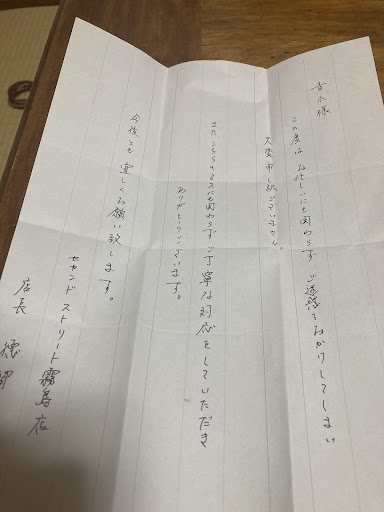 青木様
この度は お忙しいにも関わらず ご迷惑をおかけしてしまい
大変申し訳ございません。
また こちらのミスにも関わらず ご丁寧な対応をしていただき
ありがとうございます。
今後とも 宜しくお願い致します。
セカンドストリート霧島店
店長 徳留